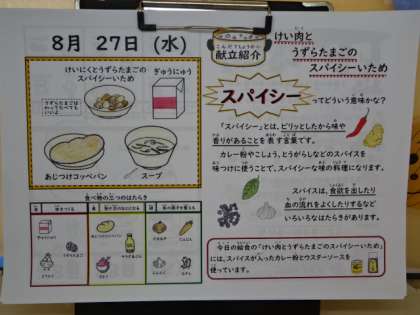 8月 27日 (水)
こんだてしょうかい
献立紹介
けい肉と
うずらたまごの
スパイシーいため
けいにくとうずらたまごの
スパイシーいため
ぎゅうにゅう
うずらたまごは
よくかんでたべて
ください。
あじつけコッペパン
スープ
スパイシー
ってどういう意味かな?
「スパイシー」とは、ピリッとしたから味や
香りがあることを表す言葉です。
カレー粉やこしょう、とうがらしなどのスパイスを
味つけに使うことで、スパイシーな味の料理になります。
スパイスは、食欲を出したり
血の流れをよくしたりするなど
いろいろなはたらきがあります。
今日の給食の「けい肉とうずらたまごのスパイシーいため」
には、スパイスが入ったカレー粉とウスターソースを
使っています。
食べ物の三つのはたらき
赤
黄
緑
あじつけコッペパン